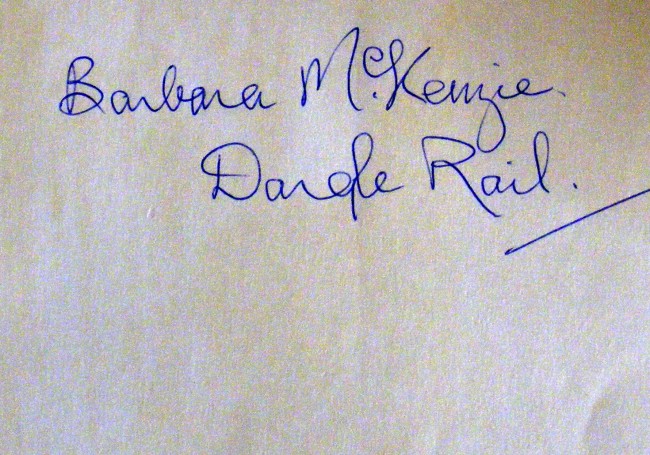 Barbara McKenzie.
Dargle Rail.